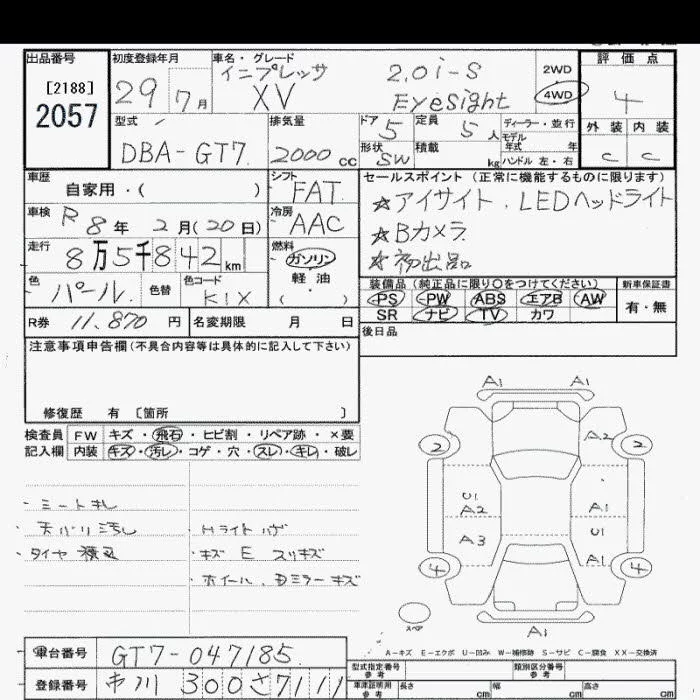 出品番号 初度登録年月 車名・グレード 評価点
[2188] 29 7月 インプレッサ 2.0i-S 2WD
2057 XV EyeSight 4WD 4
型式 排気量 ドア 5 定員 5人 ディーラー・並行 外装 内装
モデル年式 年
DBA-GT7 2000cc 形状 SW 積載 kg ハンドル 左・右 C C
車歴 シフト セールスポイント(正常に機能するものに限ります)
自家用・( ) FAT ☆アイサイト.LEDヘッドライト
車検 R8年 2月(20日) 冷房 AAC ☆Bカメラ
走行 8万5千842km 燃料 ガソリン ☆初出品
軽油
・( )
色 パール 色替 色コード K1X 装備品(純正品に限り〇をつけてください) 新車保証書
PS PW ABS エアB AW 有・無
R券 11,870円 名変期限 月 日 SR ナビ TV カワ
注意事項申告欄(不具合内容等は具体的に記入して下さい) 後日品
修復歴 有 〔箇所 〕
検査員 FW キズ・飛石・ヒビ割・リペア跡・×要
記入欄 内装 キズ・汚レ・コゲ・穴・スレ・キレ・破レ
A1 A1
2 A2 2
・シートキレ U1 A2 A1
・天バリ汚レ ・Hライトハゲ U1
・タイヤ ・キズ E スリキズ A3 A1
4 4
・ホイール、Dミラーキズ
スペア
A1
A-キズ E-エクボ U-凹み W-補修跡 S-サビ C-腐食 XX-交換済
車台番号 GT7-047185 型式指定番号 参考 類別区分番号 参考
登録番号 市川 300 さ 7111 車庫証明用 参考 長さ cm 幅 cm 高さ cm